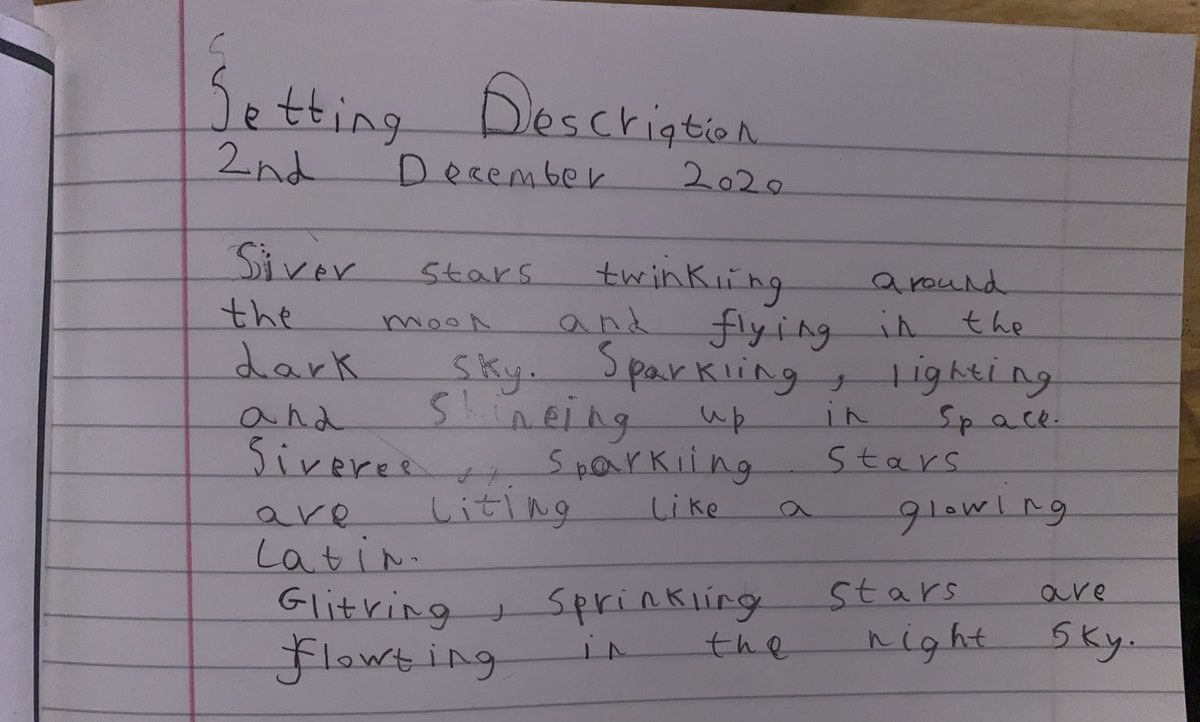 Setting Description
2nd December 2020
Siver stars twinkling around
the moon and flying in the
dark sky. Sparkling, lighting
and Shineing up in space.
Siveree,, sparkling stars
are liting like a glowing
Latin.
Glitring, sprinkling stars are
flowting in the night sky.